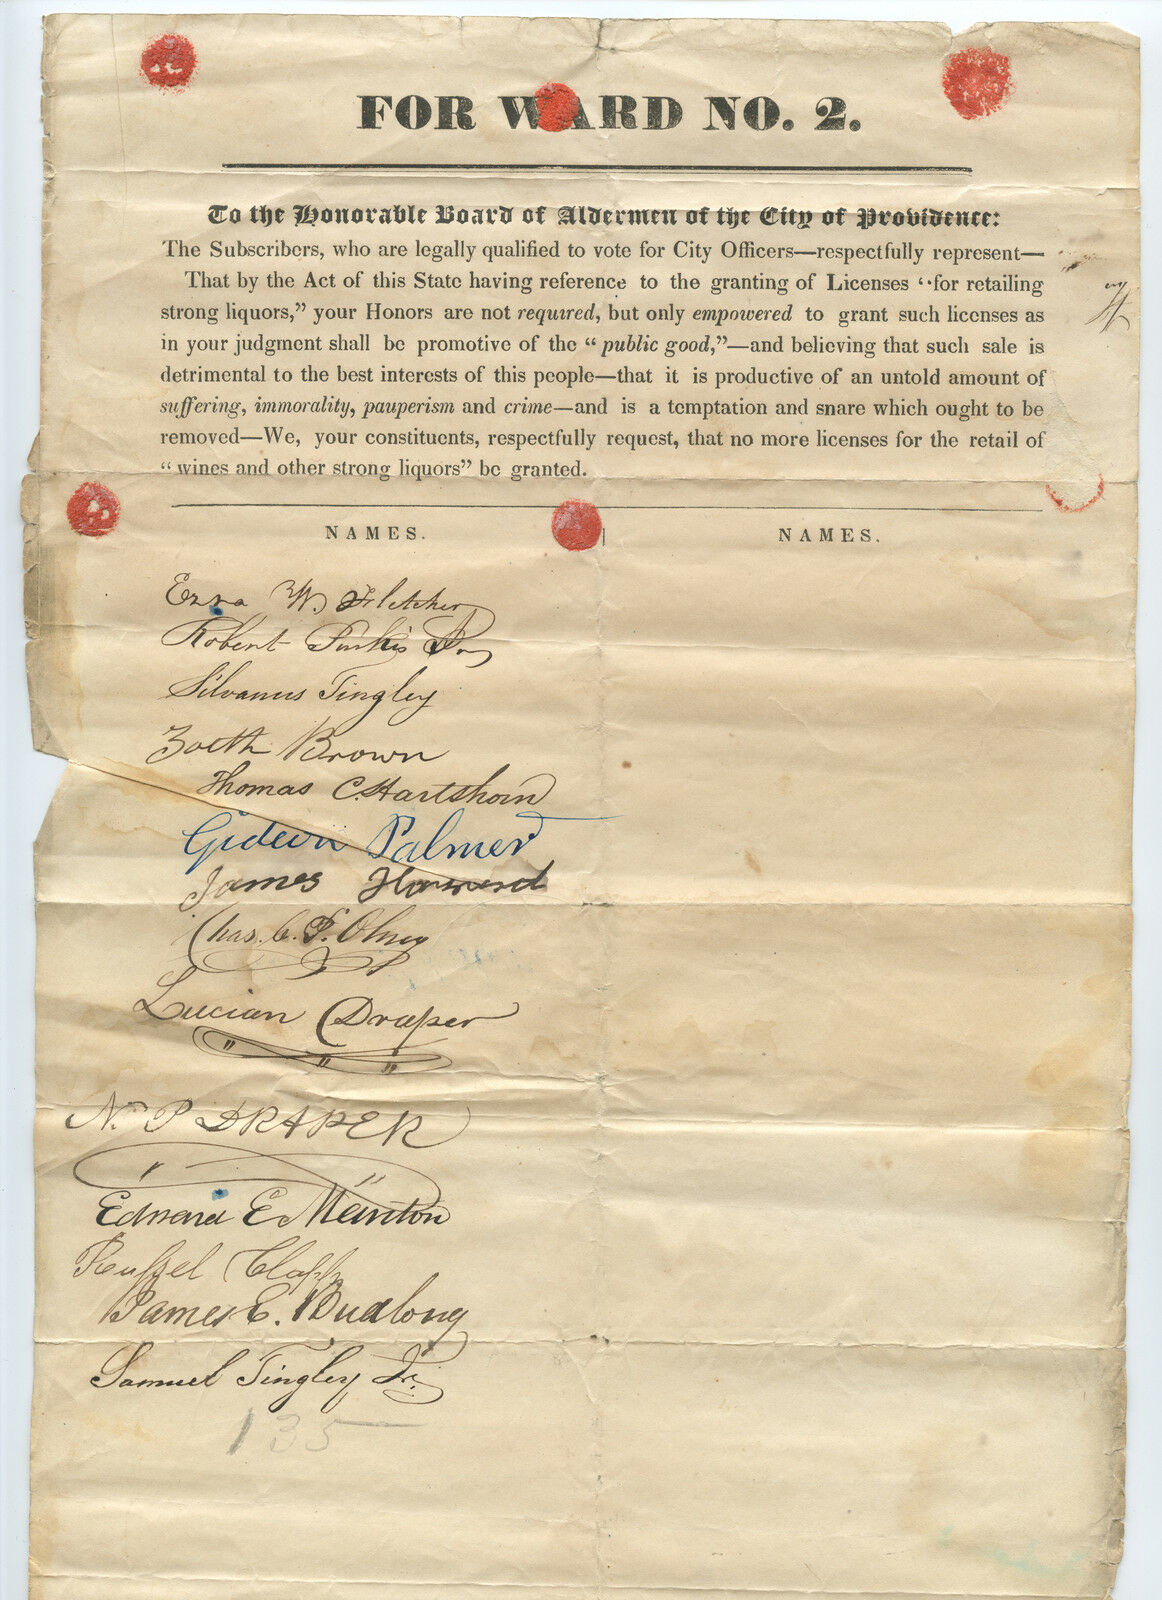 FOR WARD NO. 2.
To the Honorable Board of Aldermen of the City of Providence:
The Subscribers, who are legally qualified to vote for City Officers—respectfully represent—
That by the Act of this State having reference to the granting of Licenses “for retailing
strong liquors,” your Honors are not required, but only empowered to grant such licenses as
in your judgment shall be promotive of the “public good,”—and believing that such sale is
detrimental to the best interests of this people—that it is productive of an untold amount of
suffering, immorality, pauperism and crime—and is a temptation and snare which ought to be
removed—We, your constituents, respectfully request, that no more licenses for the retail of
“wines and other strong liquors” be granted.
NAMES. NAMES.
Ezra W. Fletcher
Robert Purkis Jr
Silvanus Tingley
Zoeth Brown
Thomas C. Hartshorn
Gideon Palmer
James
Chas. C. P. Olney
Lucian Draper
N. P DRAPER
Edward E Manton
Russel Clapp
James E. Budlong
Samuel Tingley Jr.
135